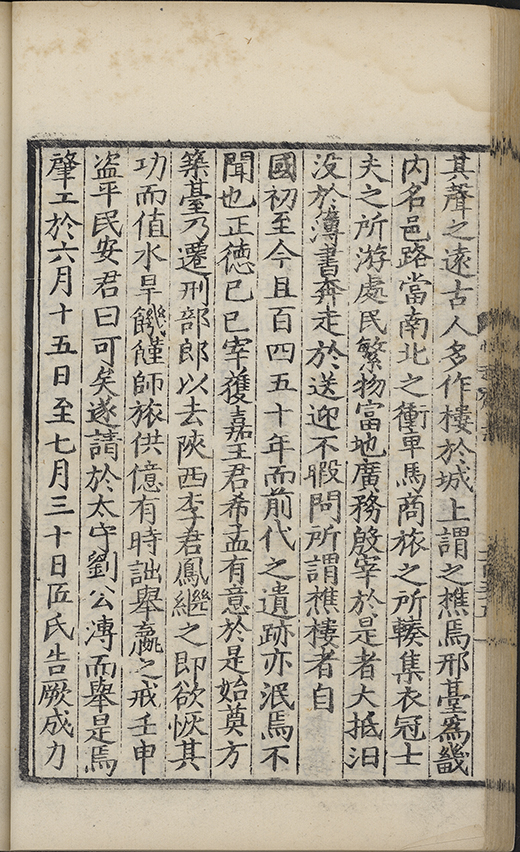 其聲之遠古人多作樓於城上謂之樵焉邢臺爲畿
内名邑路當南北之衝車馬商旅之所輳集衣冠士
夫之所游處民繁物富地廣務殷宰於是者大抵汨
没於簿書奔走於送迎不暇問所謂樵樓者自
國初至今且百四五十年而前代之遺跡亦泯焉不
聞也正德己巳宰獲嘉王君希孟有意於是始奠方
築臺乃遷刑部郎以去陝西李君鳳繼之即欲恢其
功而值水旱饑饉師旅供億有時詘舉嬴之戒壬申
盗平民安君曰可矣遂請於太守劉公溥而舉是焉
肇工於六月十五日至七月三十日匠氏告厥成力